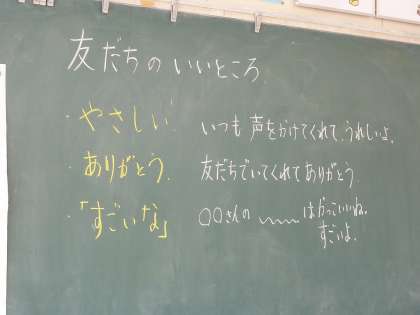 友だちのいいところ.
・やさしい. いつも声をかけてくれて、うれしいよ。
・ありがとう. 友だちでいてくれてありがとう。
・「すごいな」 〇〇さんの 〰〰 はかっこいいね。
すごいよ。